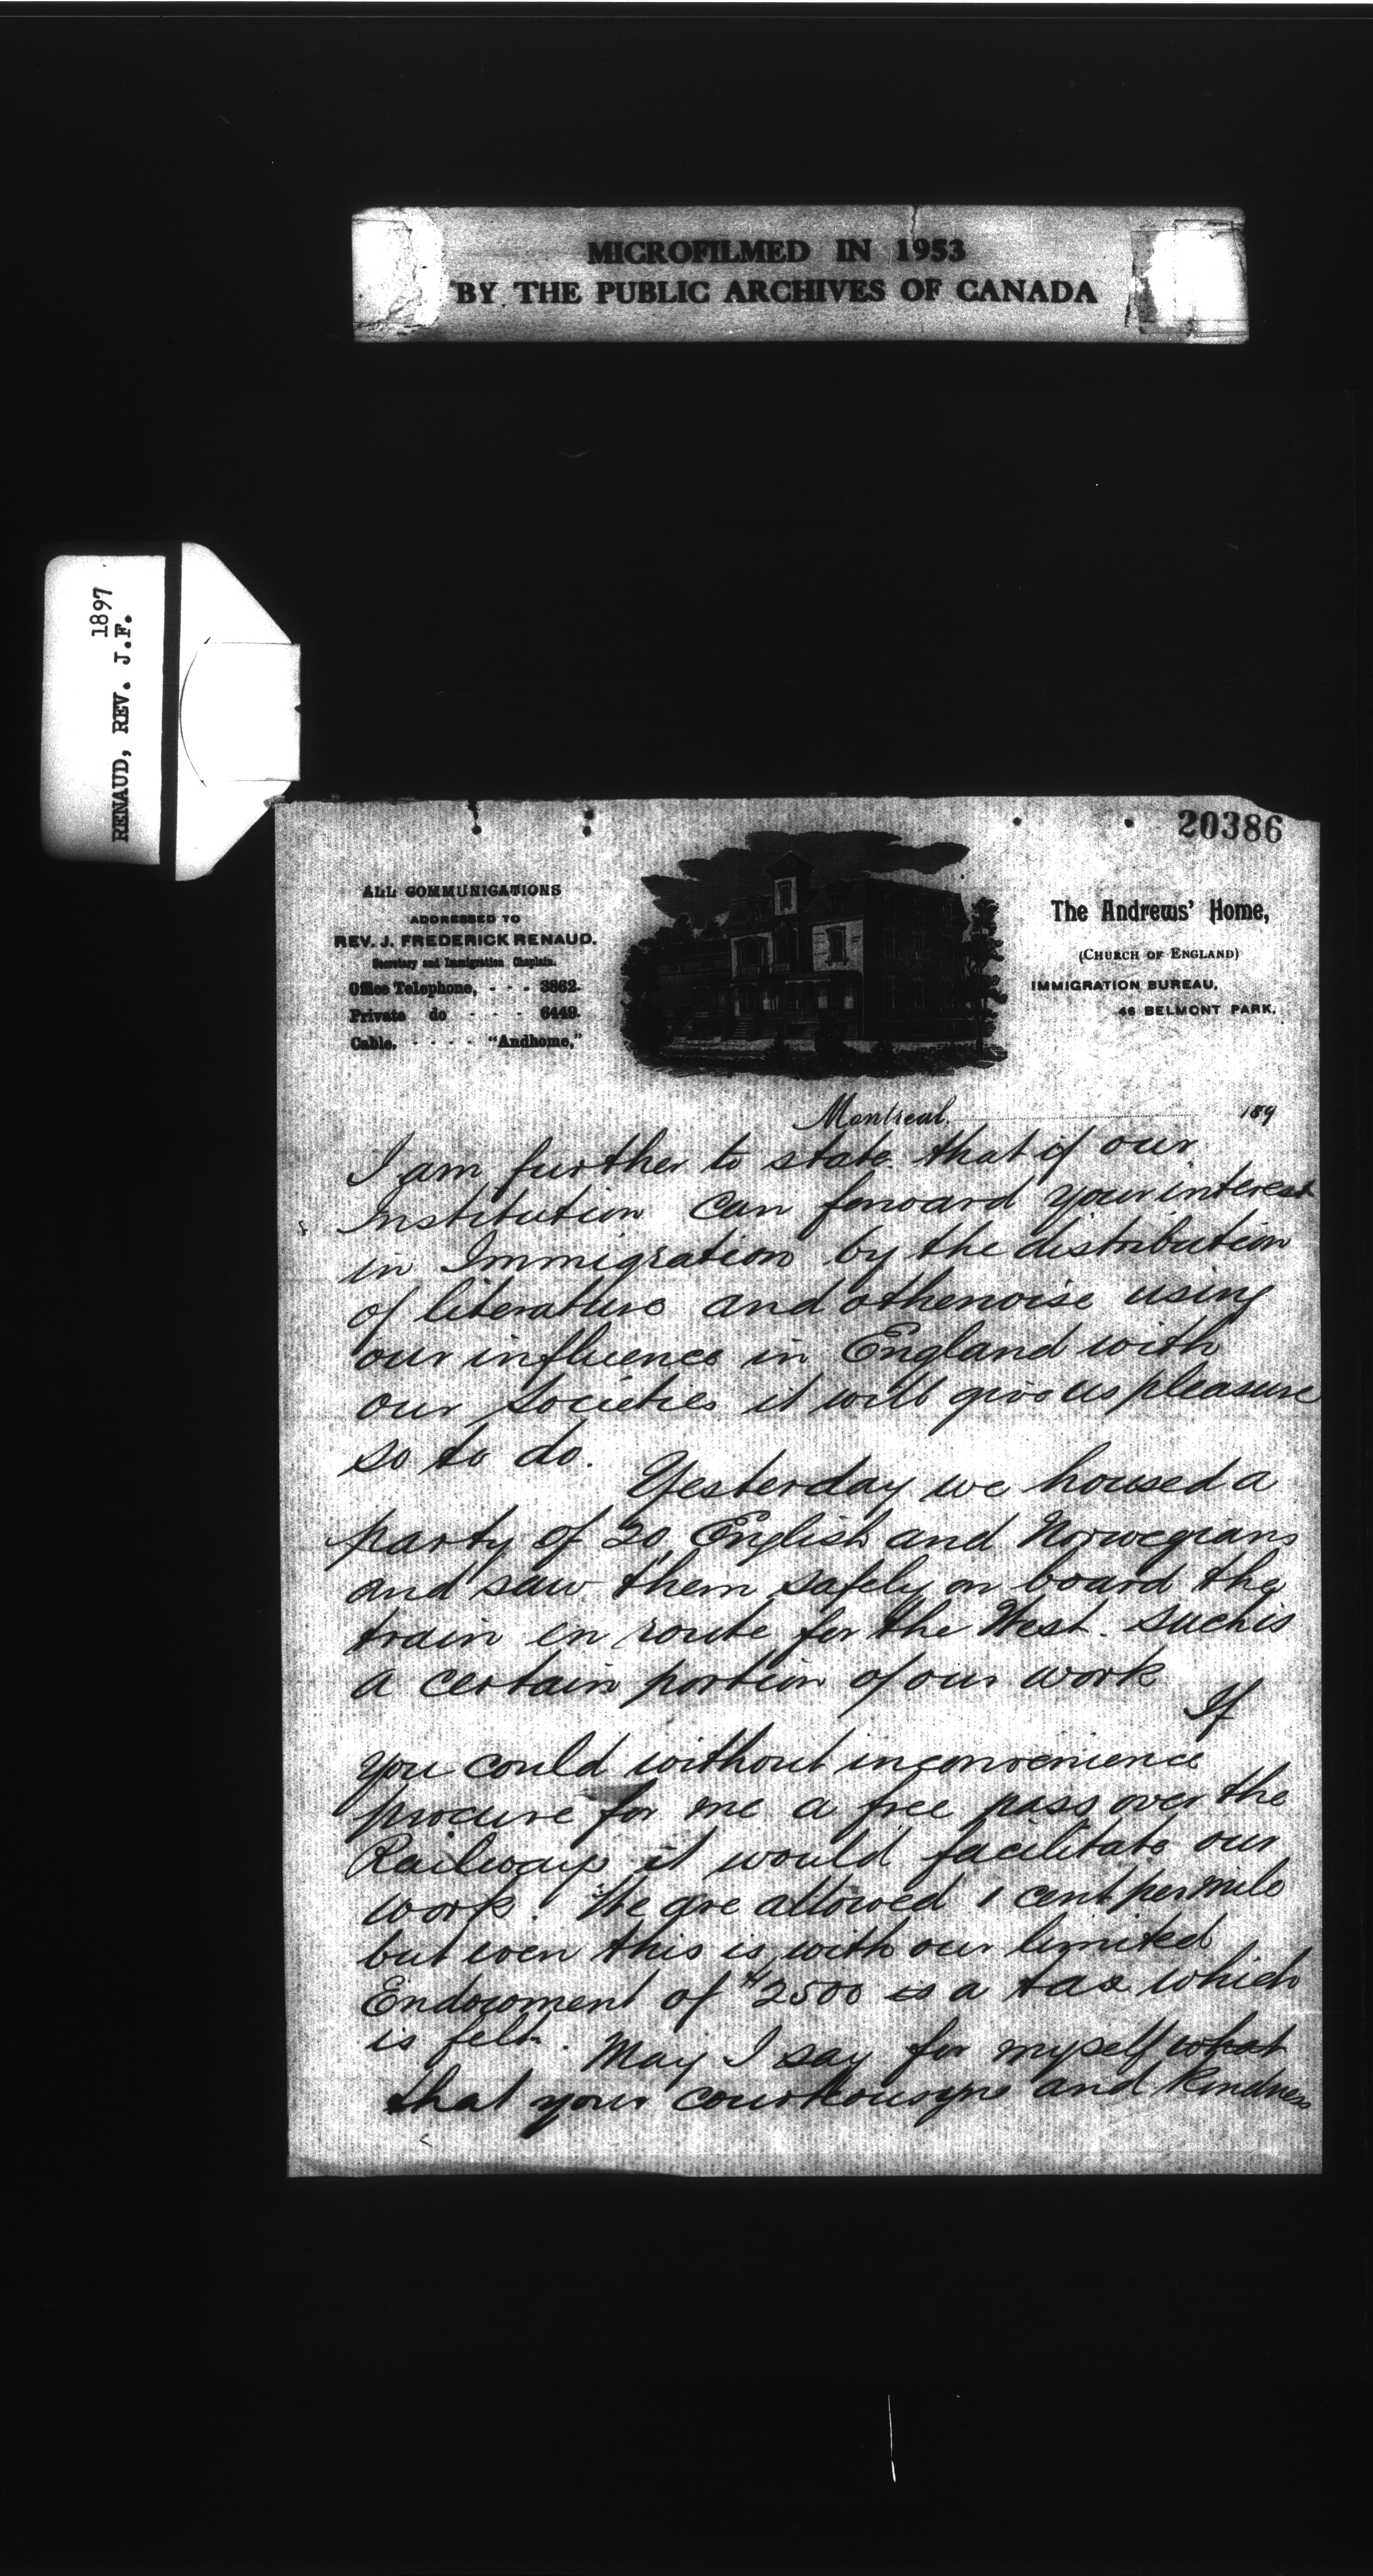 MICROFILMED IN 1953
BY THE PUBLIC ARCHIVES OF CANADA
1897
RENAUD, REV. J.F.
20386
ALL COMMUNICATIONS
ADDRESSED TO
REV. J. FREDERICK RENAUD.
Secretary and Immigration Chaplain.
Office Telephone, - - - 3862.
Private do - - - 6449.
Cable, - - - - "Andhome,"
The Andrews' Home,
(CHURCH OF ENGLAND)
IMMIGRATION BUREAU,
46 BELMONT PARK.
Montreal, 189
I am further to state that if our
Institution can forward your interest
in Immigration by the distribution
of literature and otherwise using
our influence in England with
our Societies it will give us pleasure
so to do.
Yesterday we housed a
party of 20 English and Norwegians
and saw them safely on board the
train en route for the West. Such is
a certain portion of our work
If
you could without inconvenience
procure for me a free pass over the
Railways it would facilitate our
work. We are allowed 1 cent per mile
but even this is, with our limited
Endowment of $2500 is a tax which
is felt. May I say for myself what
that your and kindness